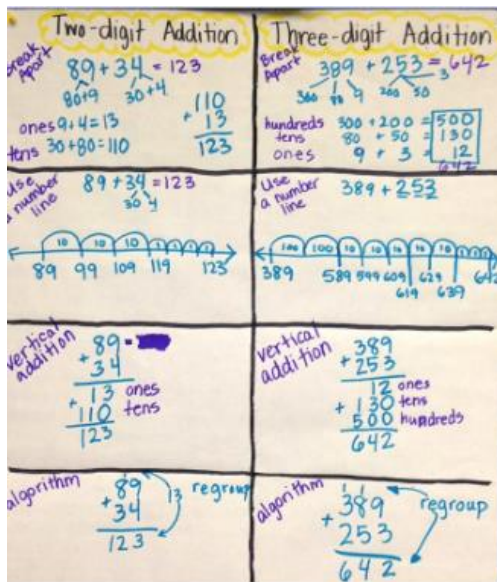 Two-digit Addition
Break Apart
89 + 34 = 123
80+9 30+4
ones 9+4=13
tens 30+80=110
110
+ 13
123
Use a number line
89 + 34 = 123
30 4
10 10 10 1 1 1 1
89 99 109 119 123
vertical addition
89
+ 34
13 ones
+ 110 tens
123
algorithm
1
89
+ 34
123
13 regroup
Three-digit Addition
Break Apart
389 + 253 = 642
300 80 9 200 50 3
hundreds 300 + 200 = 500
tens 80 + 50 = 130
ones 9 + 3 = 12
642
Use a number line
389 + 253
100 100 10 10 10 10 10 1 1 1
389 589 599 609 619 629 639 642
vertical addition
389
+ 253
12 ones
+ 130 tens
500 hundreds
642
algorithm
1 1
389
+ 253
642
regroup